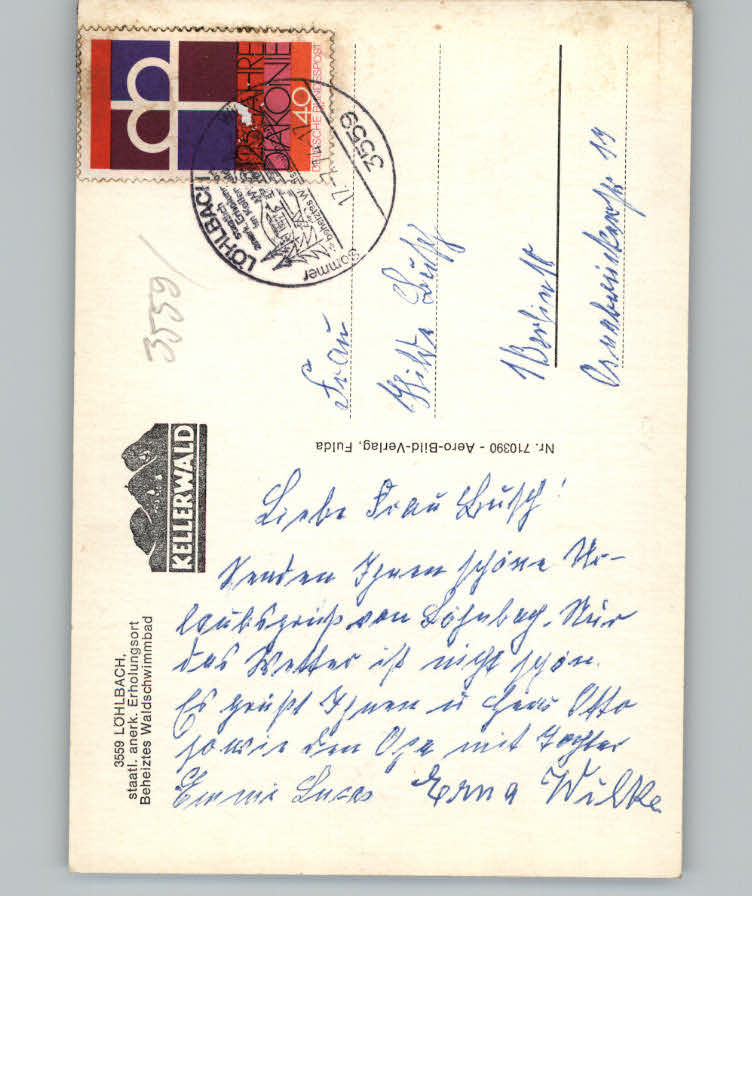 3559 LÖHLBACH,
staatl. anerk. Erholungsort
Beheiztes Waldschwimmbad
KELLERWALD
Liebe Frau Busch!
Senden Ihnen schöne Ur-
laubsgrüß von Löhlbach. Nur
das Wetter ist nicht schön.
Es grüßt Ihnen u Herr Otto
sowie den Opa mit Tochter
Emmi Lucas Erna Wilke
Nr. 710390 - Aero-Bild-Verlag, Fulda
Frau
Hilda Busch
1 Berlin
19
3559
125 JAHRE
DIAKONIE
40
DEUTSCHE BUNDESPOST
3559 LÖHLBACH
Staatlich
Sommer
beheiztes